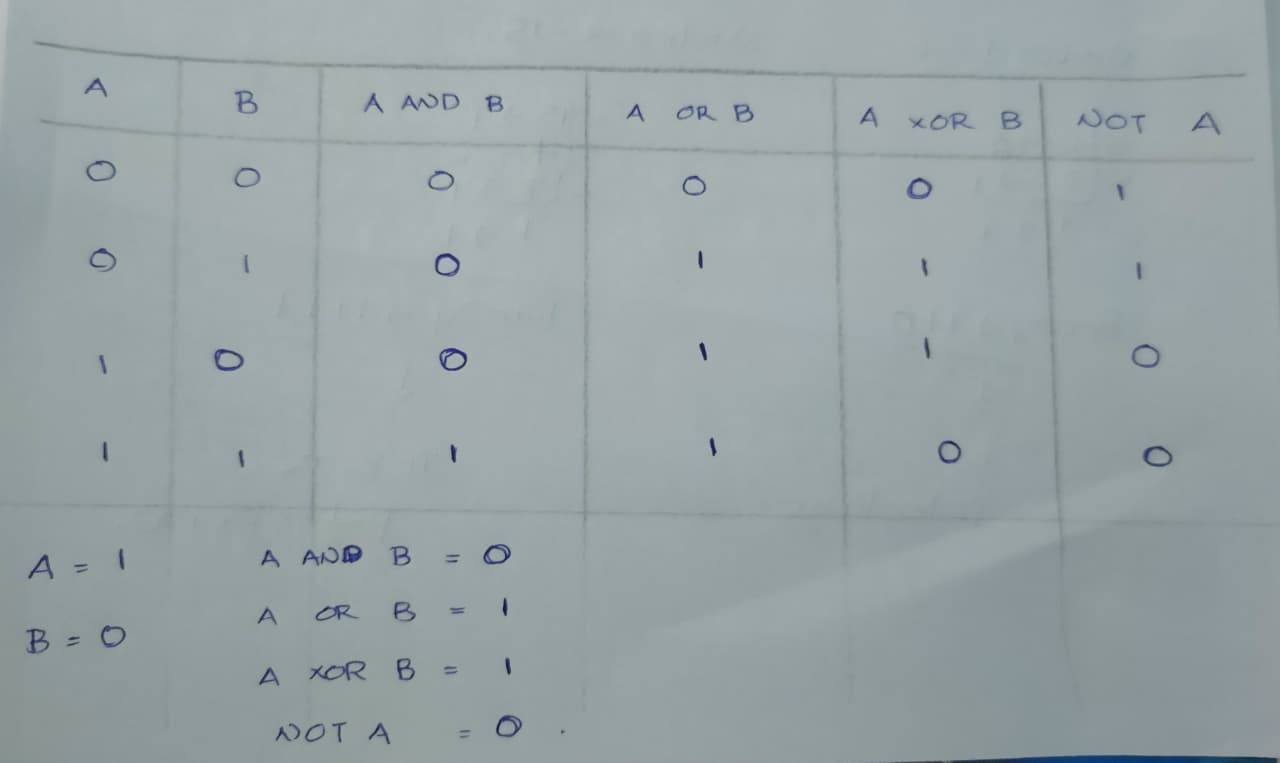 A B A AND B A OR B A XOR B NOT A
0 0 0 0 0 1
0 1 0 1 1 1
1 0 0 1 1 0
1 1 1 1 0 0
A = 1
B = 0
A AND B = 0
A OR B = 1
A XOR B = 1
NOT A = 0 .